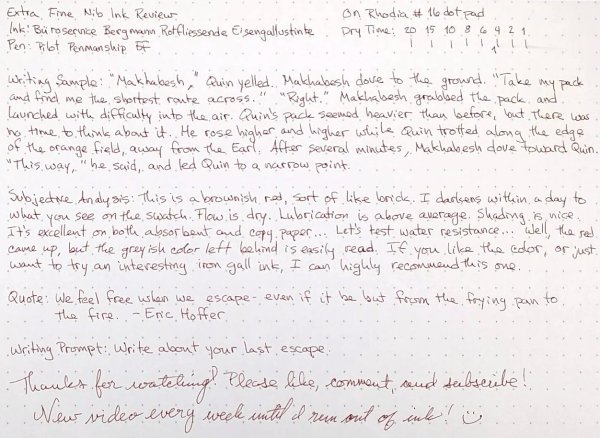 Extra Fine Nib Ink Review On Rhodia #16 dot pad
Ink: Büroservice Bergmann Rotfliessende Eisengallustinte Dry Time: 20 15 10 8 6 4 2 1
Pen: Pilot Penmanship EF
Writing Sample: "Makhabesh," Quin yelled. Makhabesh dove to the ground. "Take my pack
and find me the shortest route across." "Right." Makhabesh grabbed the pack and
launched with difficulty into the air. Quin's pack seemed heavier than before, but there was
no time to think about it. He rose higher and higher while Quin trotted along the edge
of the orange field, away from the Earl. After several minutes, Makhabesh dove toward Quin.
"This way," he said, and led Quin to a narrow point.
Subjective Analysis: This is a brownish red, sort of like brick. I darkens within a day to
what you see on the swatch. Flow is dry. Lubrication is above average. Shading is nice.
It's excellent on both absorbent and copy paper... Let's test water resistance... Well, the red
came up, but the greyish color left behind is easily read. If you like the color, or just
want to try an interesting iron gall ink, I can highly recommend this one.
Quote: We feel free when we escape - even if it be but from the frying pan to
the fire. - Eric Hoffer
Writing Prompt: Write about your last escape.
Thanks for watching! Please like, comment, and subscribe!
New video every week until I run out of ink! :)